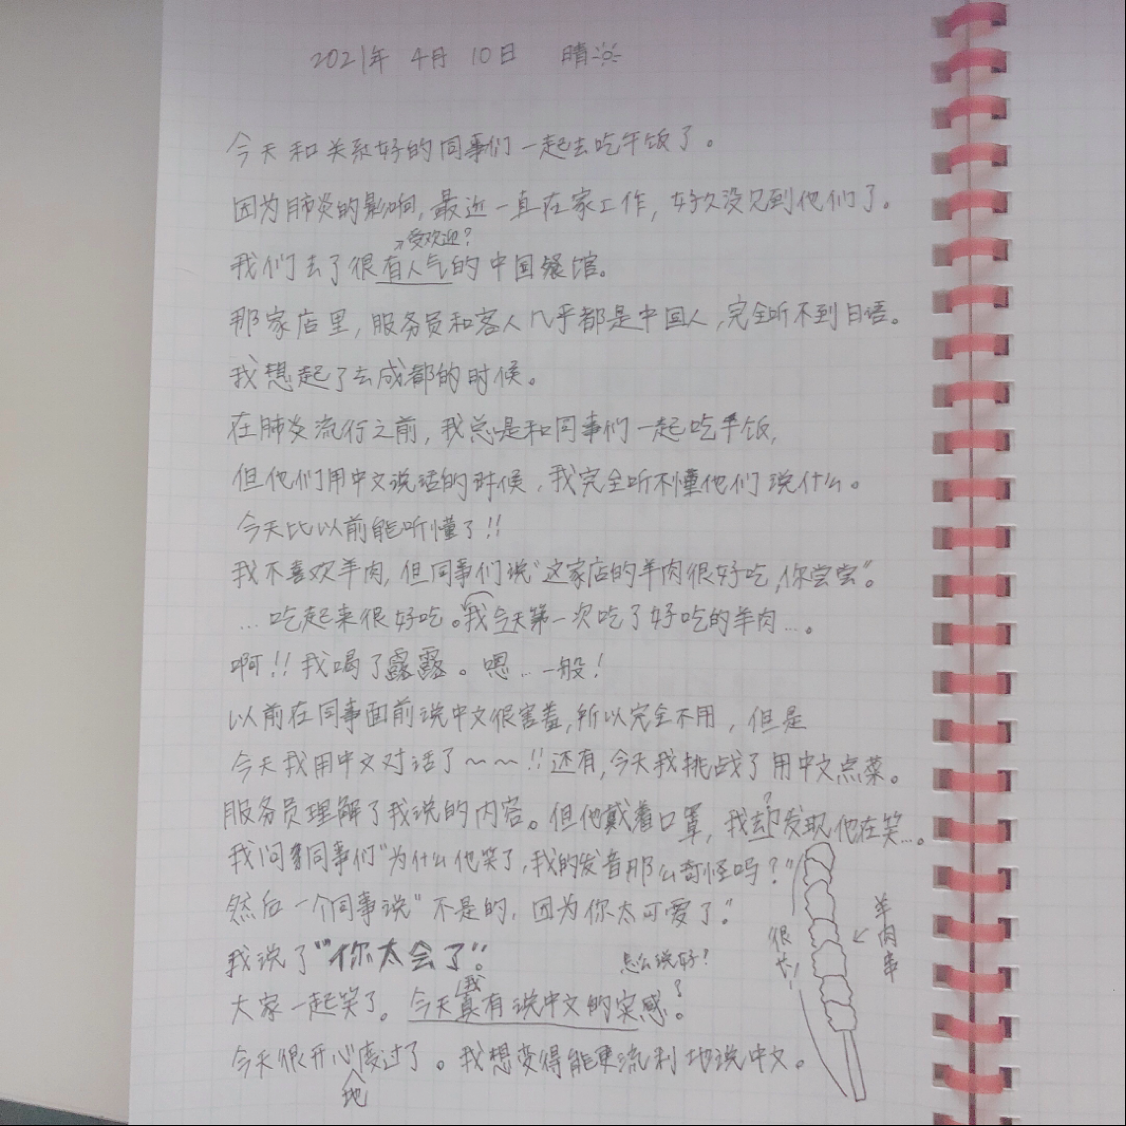 2021年 4月 10日 晴
今天和关系好的同事们一起去吃午饭了。
因为肺炎的影响,最近一直在家工作,好久没见到他们了。
受欢迎?
我们去了很有人气的中国餐馆。
那家店里,服务员和客人几乎都是中国人,完全听不到日语。
我想起了去成都的时候。
在肺炎流行之前,我总是和同事们一起吃午饭,
但他们用中文说话的时候,我完全听不懂他们说什么。
今天比以前能听懂了!!
我不喜欢羊肉,但同事们说“这家店的羊肉很好吃,你尝尝”。
...吃起来很好吃。我今天第一次吃了好吃的羊肉...。
啊!!我喝了露露。嗯...一般!
以前在同事面前说中文很害羞,所以完全不用,但是
今天我用中文对话了~~!!还有,今天我挑战了用中文点菜。
服务员理解了我说的内容。但他戴着口罩,我却发现他在笑...。
?
我问同事们“为什么他笑了,我的发音那么奇怪吗?”
然后一个同事说“不是的,因为你太可爱了。”
我说了“你太会了”。
怎么说好?
大家一起笑了。今天我真有说中文的实感?。
今天很开心地度过了。我想变得能更流利地说中文。
羊肉串
很长!